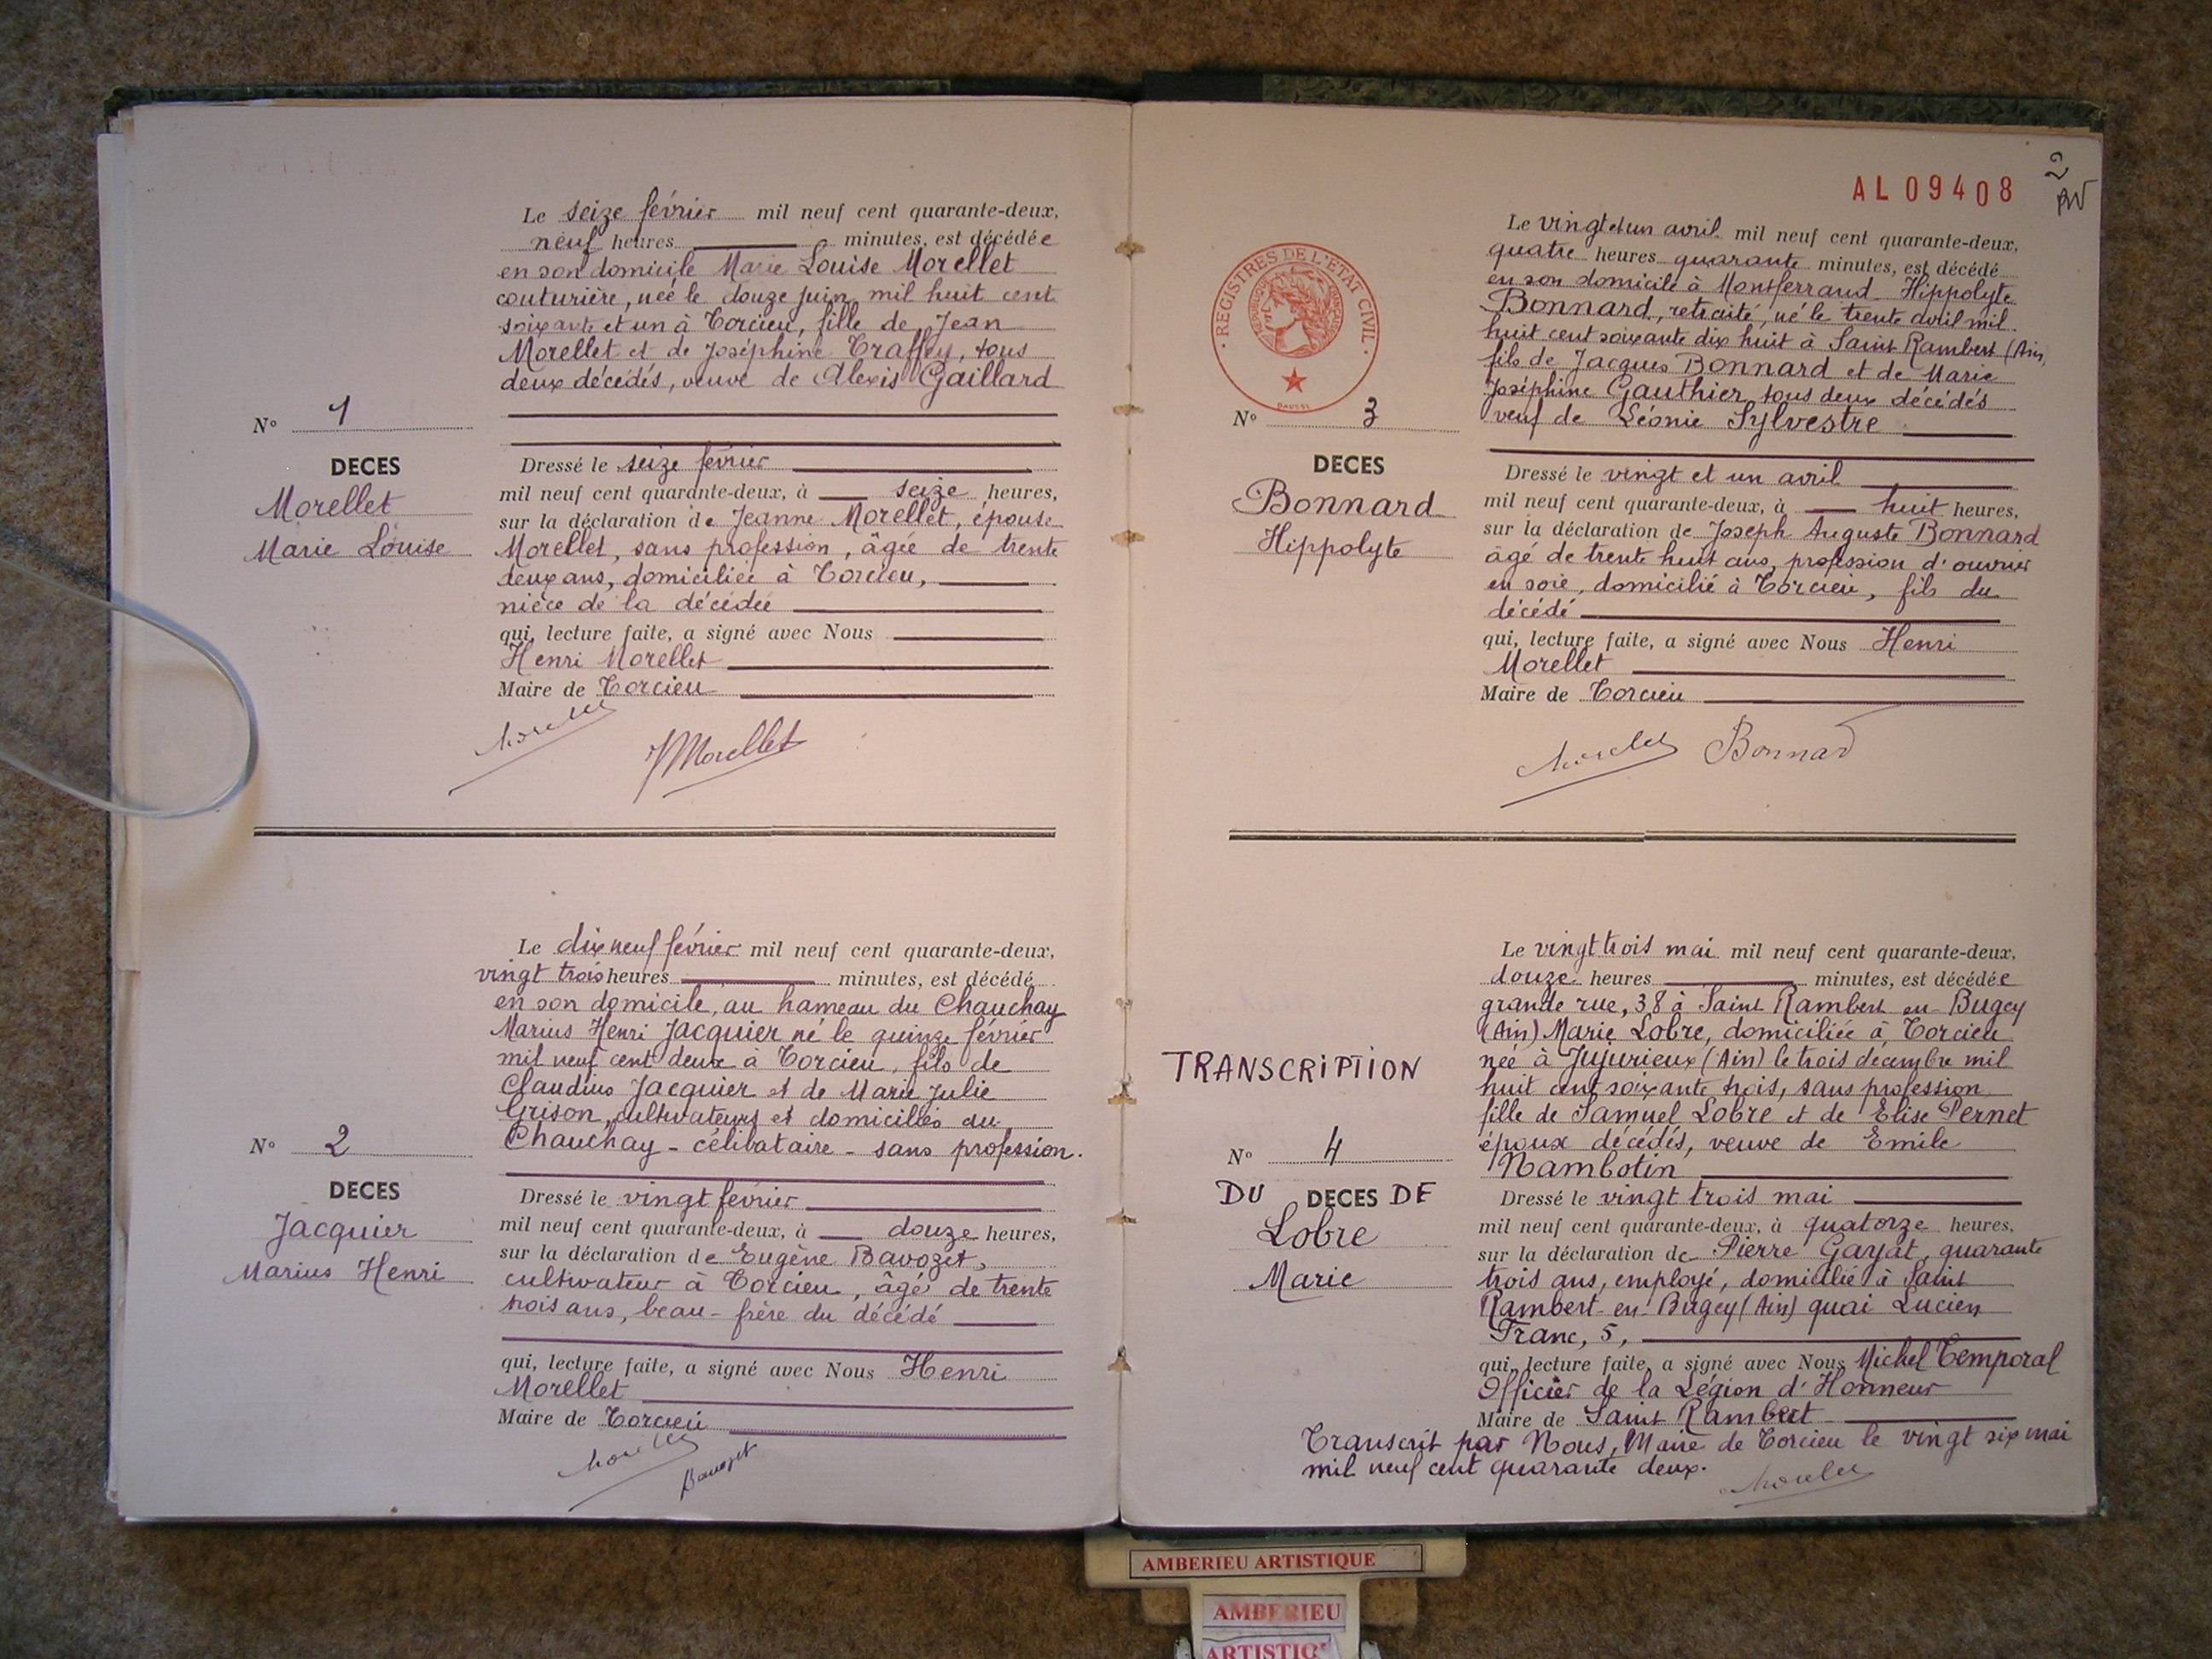 Le seize février mil neuf cent quarante-deux,
neuf heures minutes, est décédée
en son domicile Marie Louise Morellet
couturière, née le douze juin mil huit cent
soixante et un à Torcieu, fille de Jean
Morellet et de Joséphine Traffey, tous
deux décédés, veuve de Alexis Gaillard
N° 1
DECES
Morellet
Marie Louise
Dressé le seize février
mil neuf cent quarante-deux, à seize heures,
sur la déclaration de Jeanne Morellet, épouse
Morellet, sans profession, âgée de trente
deux ans, domiciliée à Torcieu,
nièce de la décédée
qui, lecture faite, a signé avec Nous
Henri Morellet
Maire de Torcieu
Morellet
JMorellet
Le dix neuf février mil neuf cent quarante-deux,
vingt trois heures minutes, est décédé
en son domicile, au hameau du Chauchay
Marius Henri Jacquier né le quinze février
mil neuf cent deux à Torcieu, fils de
Claudius Jacquier et de Marie Julie
Grison, cultivateurs et domiciliés au
Chauchay - célibataire - sans profession.
N° 2
DECES
Jacquier
Marius Henri
Dressé le vingt février
mil neuf cent quarante-deux, à douze heures,
sur la déclaration de Eugène Bavozet,
cultivateur à Torcieu, âgé de trente
trois ans, beau-frère du décédé
qui, lecture faite, a signé avec Nous Henri
Morellet
Maire de Torcieu
Morellet
Bavozet
2
AL 09408
REGISTRES DE L'ETAT CIVIL
Le vingt et un avril mil neuf cent quarante-deux,
quatre heures quarante minutes, est décédé
en son domicile à Montferrand Hippolyte
Bonnard, retraité, né le trente avril mil
huit cent soixante dix huit à Saint Rambert (Ain,
fils de Jacques Bonnard et de Marie
Joséphine Gauthier tous deux décédés
veuf de Léonie Sylvestre
N° 3
DECES
Bonnard
Hippolyte
Dressé le vingt et un avril
mil neuf cent quarante-deux, à huit heures,
sur la déclaration de Joseph Auguste Bonnard
âgé de trente huit ans, profession d'ouvrier
en soie, domicilié à Torcieu, fils du
décédé
qui, lecture faite, a signé avec Nous Henri
Morellet
Maire de Torcieu
Morellet Bonnard
Le vingt trois mai mil neuf cent quarante-deux,
douze heures minutes, est décédée
grande rue, 38 à Saint Rambert en Bugey
(Ain) Marie Lobre, domiciliée à Torcieu
née à Jujurieux (Ain) le trois décembre mil
huit cent soixante trois, sans profession
fille de Samuel Lobre et de Elise Pernet
époux décédés, veuve de Emile
Nambotin
TRANSCRIPTION
N° 4
DU DECES DE
Lobre
Marie
Dressé le vingt trois mai
mil neuf cent quarante-deux, à quatorze heures,
sur la déclaration de Pierre Gayat, quarante
trois ans, employé, domicilié à Saint
Rambert-en-Bugey (Ain) quai Lucien
Franc, 5,
qui, lecture faite, a signé avec Nous Michel Temporal
Officier de la Légion d'Honneur
Maire de Saint Rambert
Transcrit par Nous, Maire de Torcieu le vingt six mai
mil neuf cent quarante deux.
Morellet
AMBERIEU ARTISTIQUE
AMBERIEU
ARTISTIQ